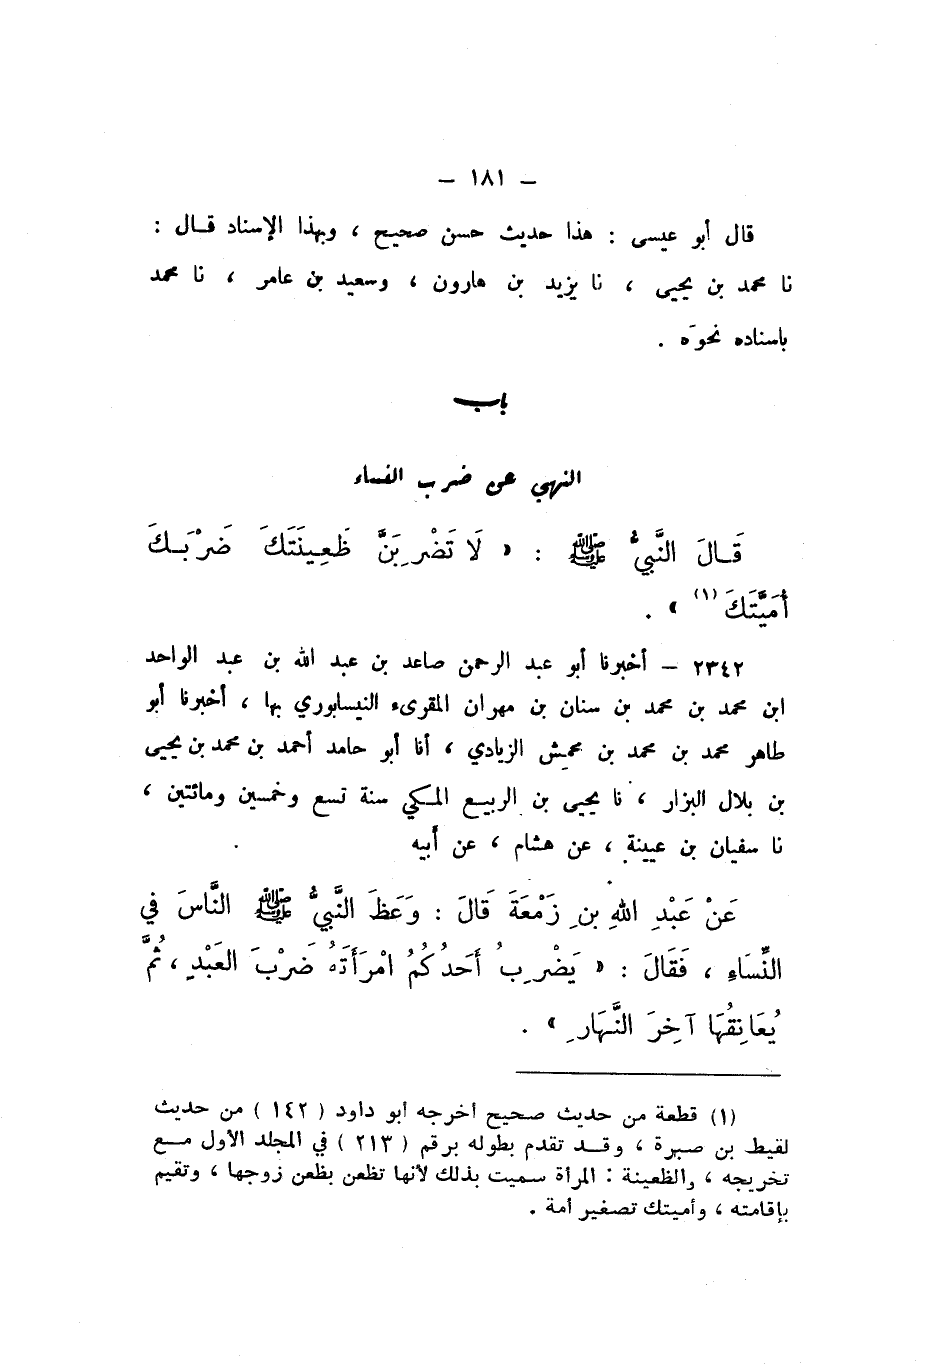 – ١٨١ –
قال أبو عيسى : هذا حديث حسن صحيح ، وبهذا الإسناد قــال :
نا محمد بن يحيى ، نا يزيد بن هارون ، وسعيد بن عامر ، نا محمد
باسناده نحوَه .
باب
النهي عن ضرب النساء
قَــالَ النَّبيُّ ﷺ : « لَا تَضْرِبَنَّ ظَعِينَتَكَ ضَرْبَــكَ
أُمَيَّتَكَ (١) » .
٢٣٤٢ – أخبرنا أبو عبد الرحمن صاعد بن عبد الله بن عبد الواحد
ابن محمد بن محمد بن سنان بن مهران المقرىء النيسابوري بها ، أخبرنا أبو
طاهر محمد بن محمد بن محمش الزيادي ، أنا أبو حامد أحمد بن محمد بن يحيى
بن بلال البزار ، نا يحيى بن الربيع المكي سنة تسع وخمسين ومائتين ،
نا سفيان بن عيينة ، عن هشام ، عن أبيه
عَنْ عَبْدِ اللهِ بنِ زَمْعَةَ قَالَ : وَعَظَ النَّبيُّ ﷺ النَّاسَ في
النِّسَاءِ ، فَقَالَ : « يَضْرِبُ أَحَدُكُمُ امْرَأَتَهُ ضَرْبَ العَبْدِ ، ثُمَّ
يُعَانِقُهَا آخِرَ النَّهَارِ » .
(١) قطعة من حديث صحيح أخرجه أبو داود ( ١٤٢ ) من حديث
لقيط بن صبرة ، وقــد تقدم بطوله برقم ( ٢١٣ ) في المجلد الأول مــع
تخريجه ، والظعينة : المرأة سميت بذلك لأنها تظعن بظعن زوجها ، وتقيم
بإقامته ، وأميتك تصغير أمة .